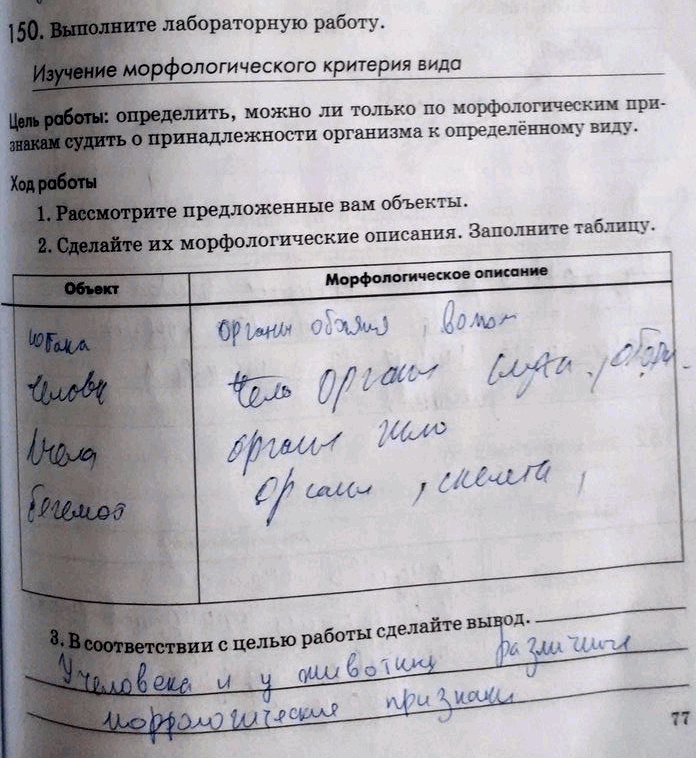 150. Выполните лабораторную работу.
Изучение морфологического критерия вида
Цель работы: определить, можно ли только по морфологическим при-
знакам судить о принадлежности организма к определённому виду.
Ход работы
1. Рассмотрите предложенные вам объекты.
2. Сделайте их морфологические описания. Заполните таблицу.
Объект Морфологическое описание
органы
органы слуха,
Пчела органы
бегемот органы, скелета,
3. В соответствии с целью работы сделайте вывод.
У человека и у животных различные
морфологические признаки
77